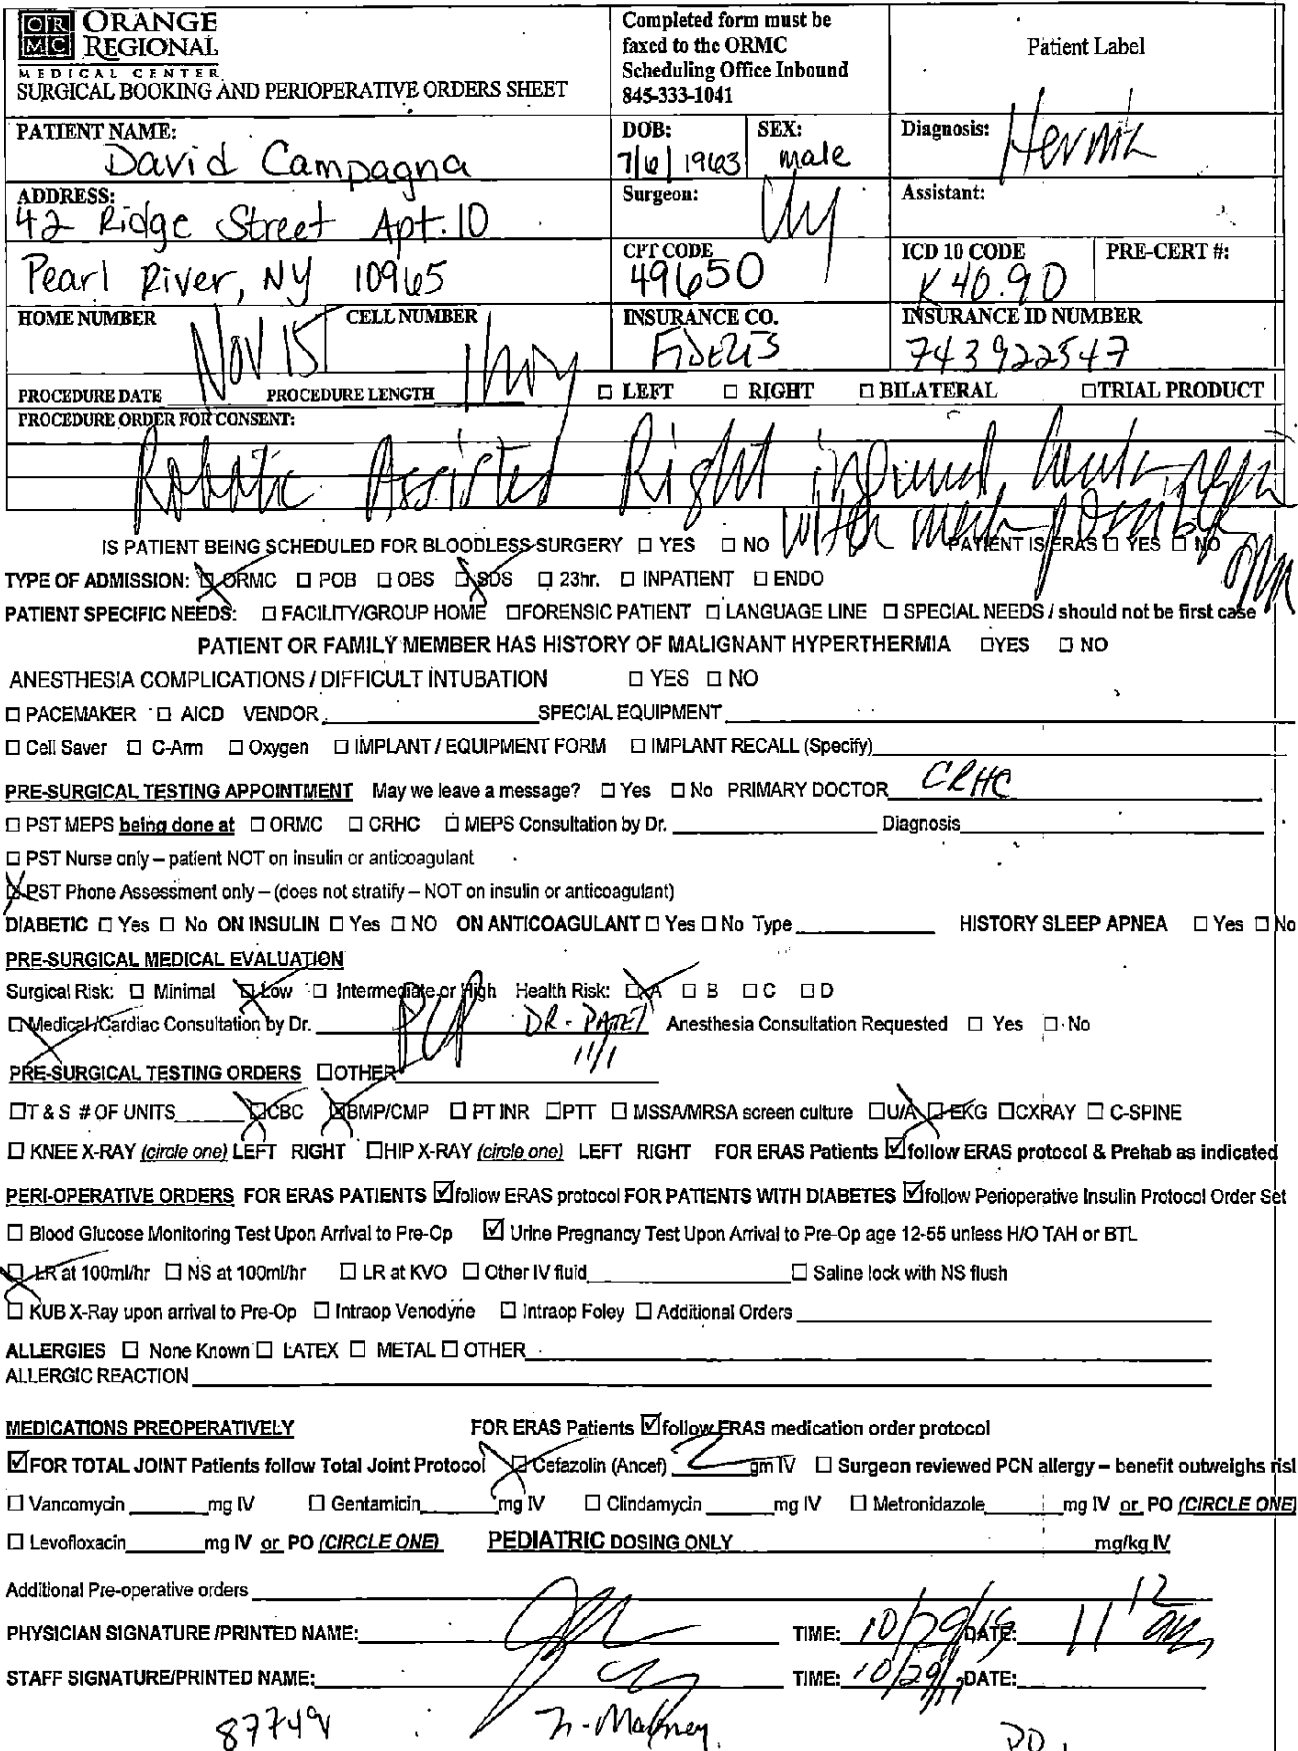 ORMC ORANGE REGIONAL
MEDICAL CENTER
SURGICAL BOOKING AND PERIOPERATIVE ORDERS SHEET
Completed form must be
faxed to the ORMC
Scheduling Office Inbound
845-333-1041
Patient Label
PATIENT NAME: David Campagna
DOB: 7/6/1963
SEX: male
Diagnosis: Hernia
ADDRESS: 42 Ridge Street Apt. 10
Surgeon:
Assistant:
Pearl River, NY 10965
CPT CODE 49650
ICD 10 CODE K40.90
PRE-CERT #:
HOME NUMBER
CELL NUMBER
INSURANCE CO. FIDELIS
INSURANCE ID NUMBER 743922547
PROCEDURE DATE Nov 15 PROCEDURE LENGTH 1 hr ☐ LEFT ☐ RIGHT ☐ BILATERAL ☐TRIAL PRODUCT
PROCEDURE ORDER FOR CONSENT:
Robotic Assisted Right inguinal hernia repair
with mesh possible open
IS PATIENT BEING SCHEDULED FOR BLOODLESS SURGERY ☐ YES ☐ NO PATIENT IS ERAS ☐ YES ☐ NO
TYPE OF ADMISSION: ☒ ORMC ☐ POB ☐ OBS ☒ SDS ☐ 23hr. ☐ INPATIENT ☐ ENDO
PATIENT SPECIFIC NEEDS: ☐ FACILITY/GROUP HOME ☐FORENSIC PATIENT ☐ LANGUAGE LINE ☐ SPECIAL NEEDS / should not be first case
PATIENT OR FAMILY MEMBER HAS HISTORY OF MALIGNANT HYPERTHERMIA ☐YES ☐ NO
ANESTHESIA COMPLICATIONS / DIFFICULT INTUBATION ☐ YES ☐ NO
☐ PACEMAKER ☐ AICD VENDOR SPECIAL EQUIPMENT
☐ Cell Saver ☐ C-Arm ☐ Oxygen ☐ IMPLANT / EQUIPMENT FORM ☐ IMPLANT RECALL (Specify)
PRE-SURGICAL TESTING APPOINTMENT May we leave a message? ☐ Yes ☐ No PRIMARY DOCTOR CRHC
☐ PST MEPS being done at ☐ ORMC ☐ CRHC ☐ MEPS Consultation by Dr. Diagnosis
☐ PST Nurse only – patient NOT on insulin or anticoagulant
☒ PST Phone Assessment only – (does not stratify – NOT on insulin or anticoagulant)
DIABETIC ☐ Yes ☐ No ON INSULIN ☐ Yes ☐ NO ON ANTICOAGULANT ☐ Yes ☐ No Type HISTORY SLEEP APNEA ☐ Yes ☐ No
PRE-SURGICAL MEDICAL EVALUATION
Surgical Risk: ☐ Minimal ☒ Low ☐ Intermediate or High Health Risk: ☒ A ☐ B ☐ C ☐ D
☒ Medical/Cardiac Consultation by Dr. PCP DR. PATEL 11/1 Anesthesia Consultation Requested ☐ Yes ☐ No
PRE-SURGICAL TESTING ORDERS ☐OTHER
☐T & S # OF UNITS ☒CBC ☒BMP/CMP ☐ PT INR ☐PTT ☐ MSSA/MRSA screen culture ☐U/A ☒EKG ☐CXRAY ☐ C-SPINE
☐ KNEE X-RAY (circle one) LEFT RIGHT ☐HIP X-RAY (circle one) LEFT RIGHT FOR ERAS Patients ☑follow ERAS protocol & Prehab as indicated
PERI-OPERATIVE ORDERS FOR ERAS PATIENTS ☑follow ERAS protocol FOR PATIENTS WITH DIABETES ☑follow Perioperative Insulin Protocol Order Set
☐ Blood Glucose Monitoring Test Upon Arrival to Pre-Op ☑ Urine Pregnancy Test Upon Arrival to Pre-Op age 12-55 unless H/O TAH or BTL
☒ LR at 100ml/hr ☐ NS at 100ml/hr ☐ LR at KVO ☐ Other IV fluid ☐ Saline lock with NS flush
☐ KUB X-Ray upon arrival to Pre-Op ☐ Intraop Venodyne ☐ Intraop Foley ☐ Additional Orders
ALLERGIES ☐ None Known ☐ LATEX ☐ METAL ☐ OTHER
ALLERGIC REACTION
MEDICATIONS PREOPERATIVELY FOR ERAS Patients ☑follow ERAS medication order protocol
☑FOR TOTAL JOINT Patients follow Total Joint Protocol ☒ Cefazolin (Ancef) 2 gm IV ☐ Surgeon reviewed PCN allergy – benefit outweighs risl
☐ Vancomycin mg IV ☐ Gentamicin mg IV ☐ Clindamycin mg IV ☐ Metronidazole mg IV or PO (CIRCLE ONE)
☐ Levofloxacin mg IV or PO (CIRCLE ONE) PEDIATRIC DOSING ONLY mg/kg IV
Additional Pre-operative orders
PHYSICIAN SIGNATURE /PRINTED NAME: TIME: 10/29/19 DATE: 11 12 am
STAFF SIGNATURE/PRINTED NAME: TIME: 10/29/19 DATE:
87749 DO.